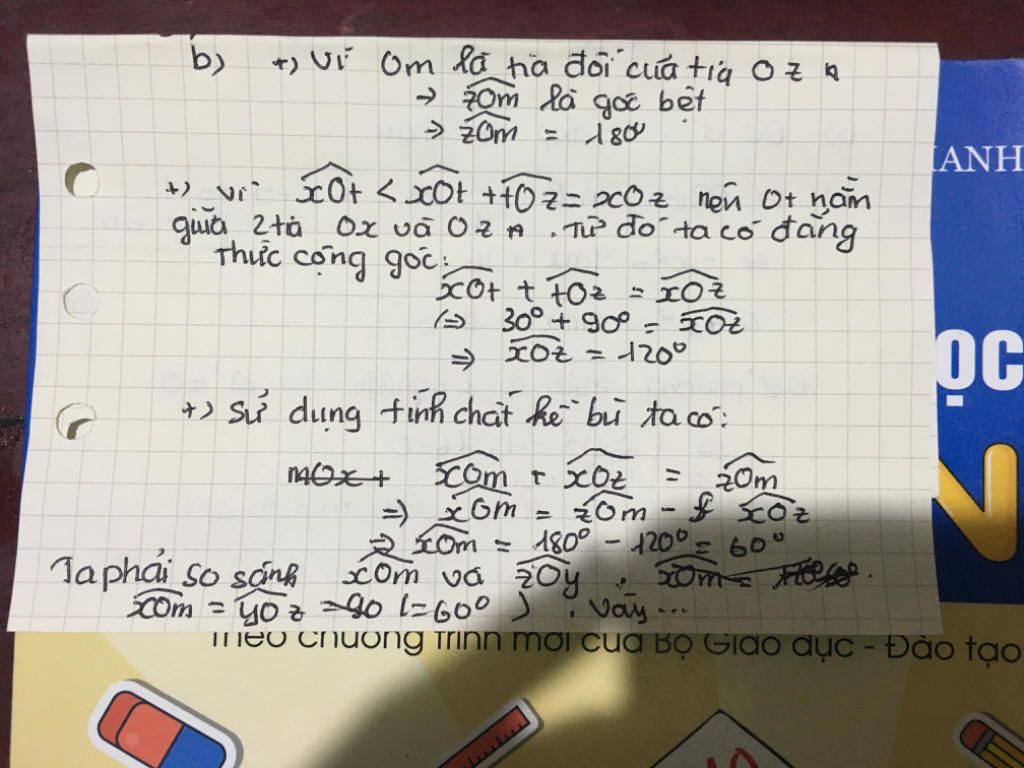 b) +) Vì Om là tia đối của tia Oz
→ zOm là góc bẹt
→ zOm = 180°
+) Vì xOt < xOt + tOz = xOz nên Ot nằm
giữa 2 tia Ox và Oz. Từ đó ta có đẳng
thức cộng góc:
xOt + tOz = xOz
(⇒ 30° + 90° = xOz
⇒ xOz = 120°
+) Sử dụng tính chất kề bù ta có:
mOx + xOm + xOz = zOm
⇒ xOm = zOm - xOz
⇒ xOm = 180° - 120° = 60°
Ta phải so sánh xOm và zOy. xOm =
xOm = yOz = 90 (= 60°). Vậy...
ANH
ỌC
Theo chương trình mới của Bộ Giáo dục - Đào tạo